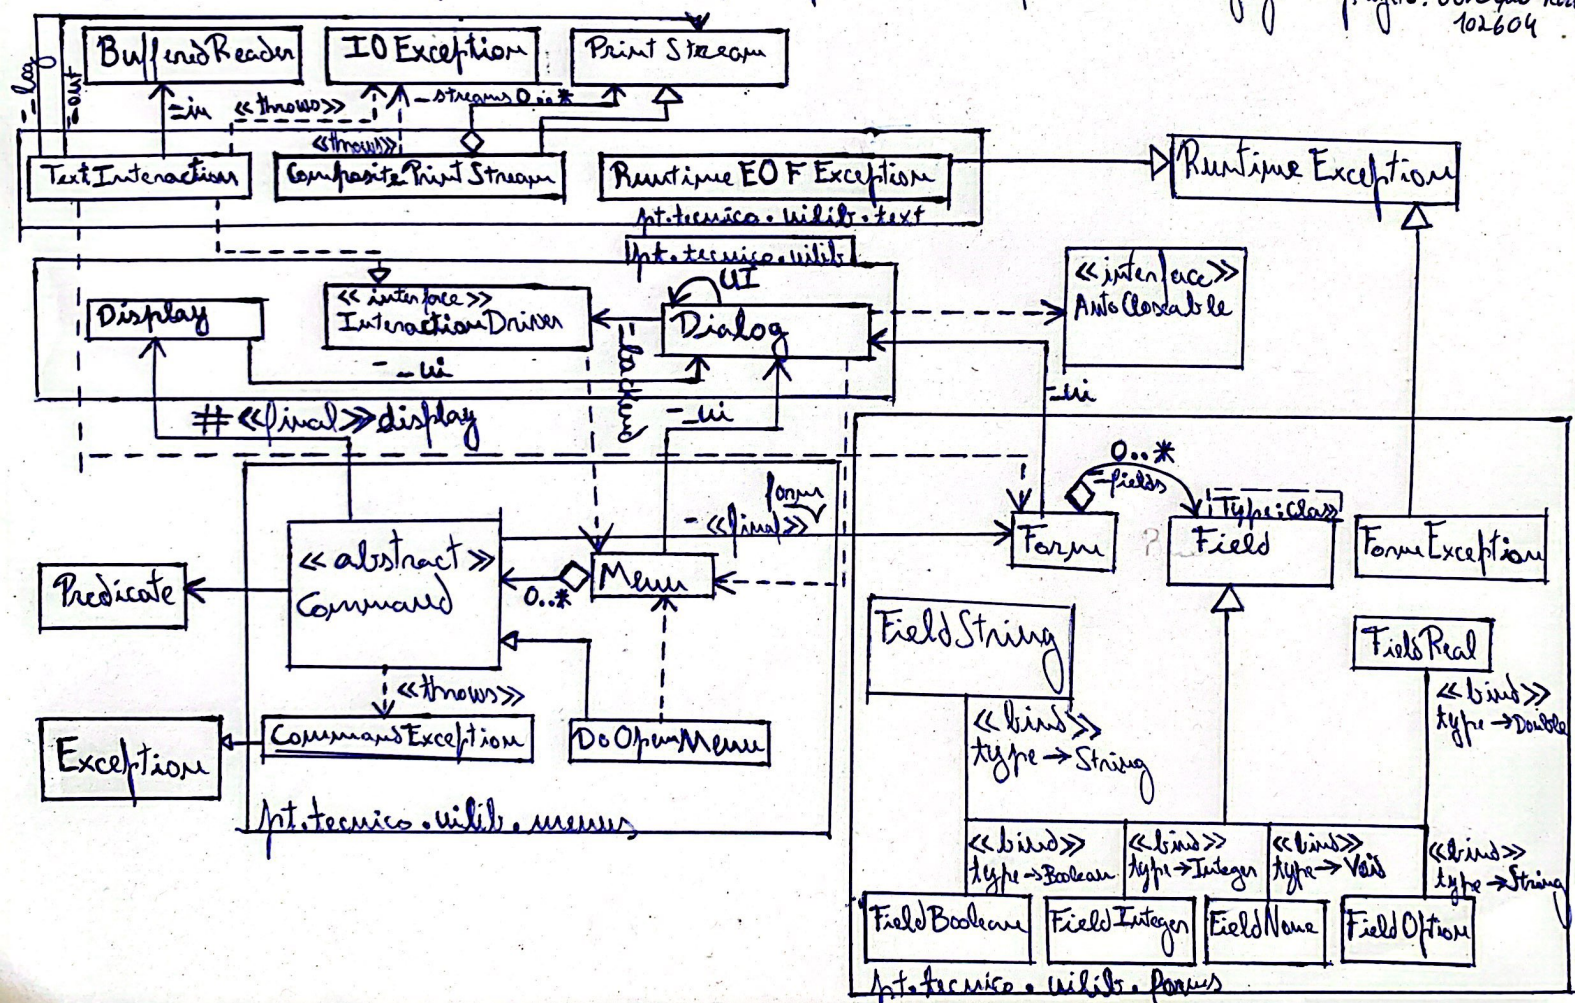 102604
BufferedReader
IOException
PrintStream
- log
- out
- in
<<throws>>
- streams 0..*
<<throws>>
TextInteraction
CompositePrintStream
RuntimeEOFException
RuntimeException
pt.tecnico.uilib.text
pt.tecnico.uilib
UI
<<interface>>
AutoCloseable
<<interface>>
InteractionDriver
Display
Dialog
- ui
- backend
- ui
- ui
# <<final>> display
0..*
- fields
form
- <<final>>
Type:Class
Form
?
Field
FormException
<<abstract>>
Command
Menu
0..*
Predicate
FieldString
FieldReal
<<throws>>
<<bind>>
type → Double
<<bind>>
type → String
CommandException
DoOpenMenu
Exception
pt.tecnico.uilib.menus
<<bind>>
type → Boolean
<<bind>>
type → Integer
<<bind>>
type → Void
<<bind>>
type → String
FieldBoolean
FieldInteger
FieldNone
FieldOption
pt.tecnico.uilib.forms